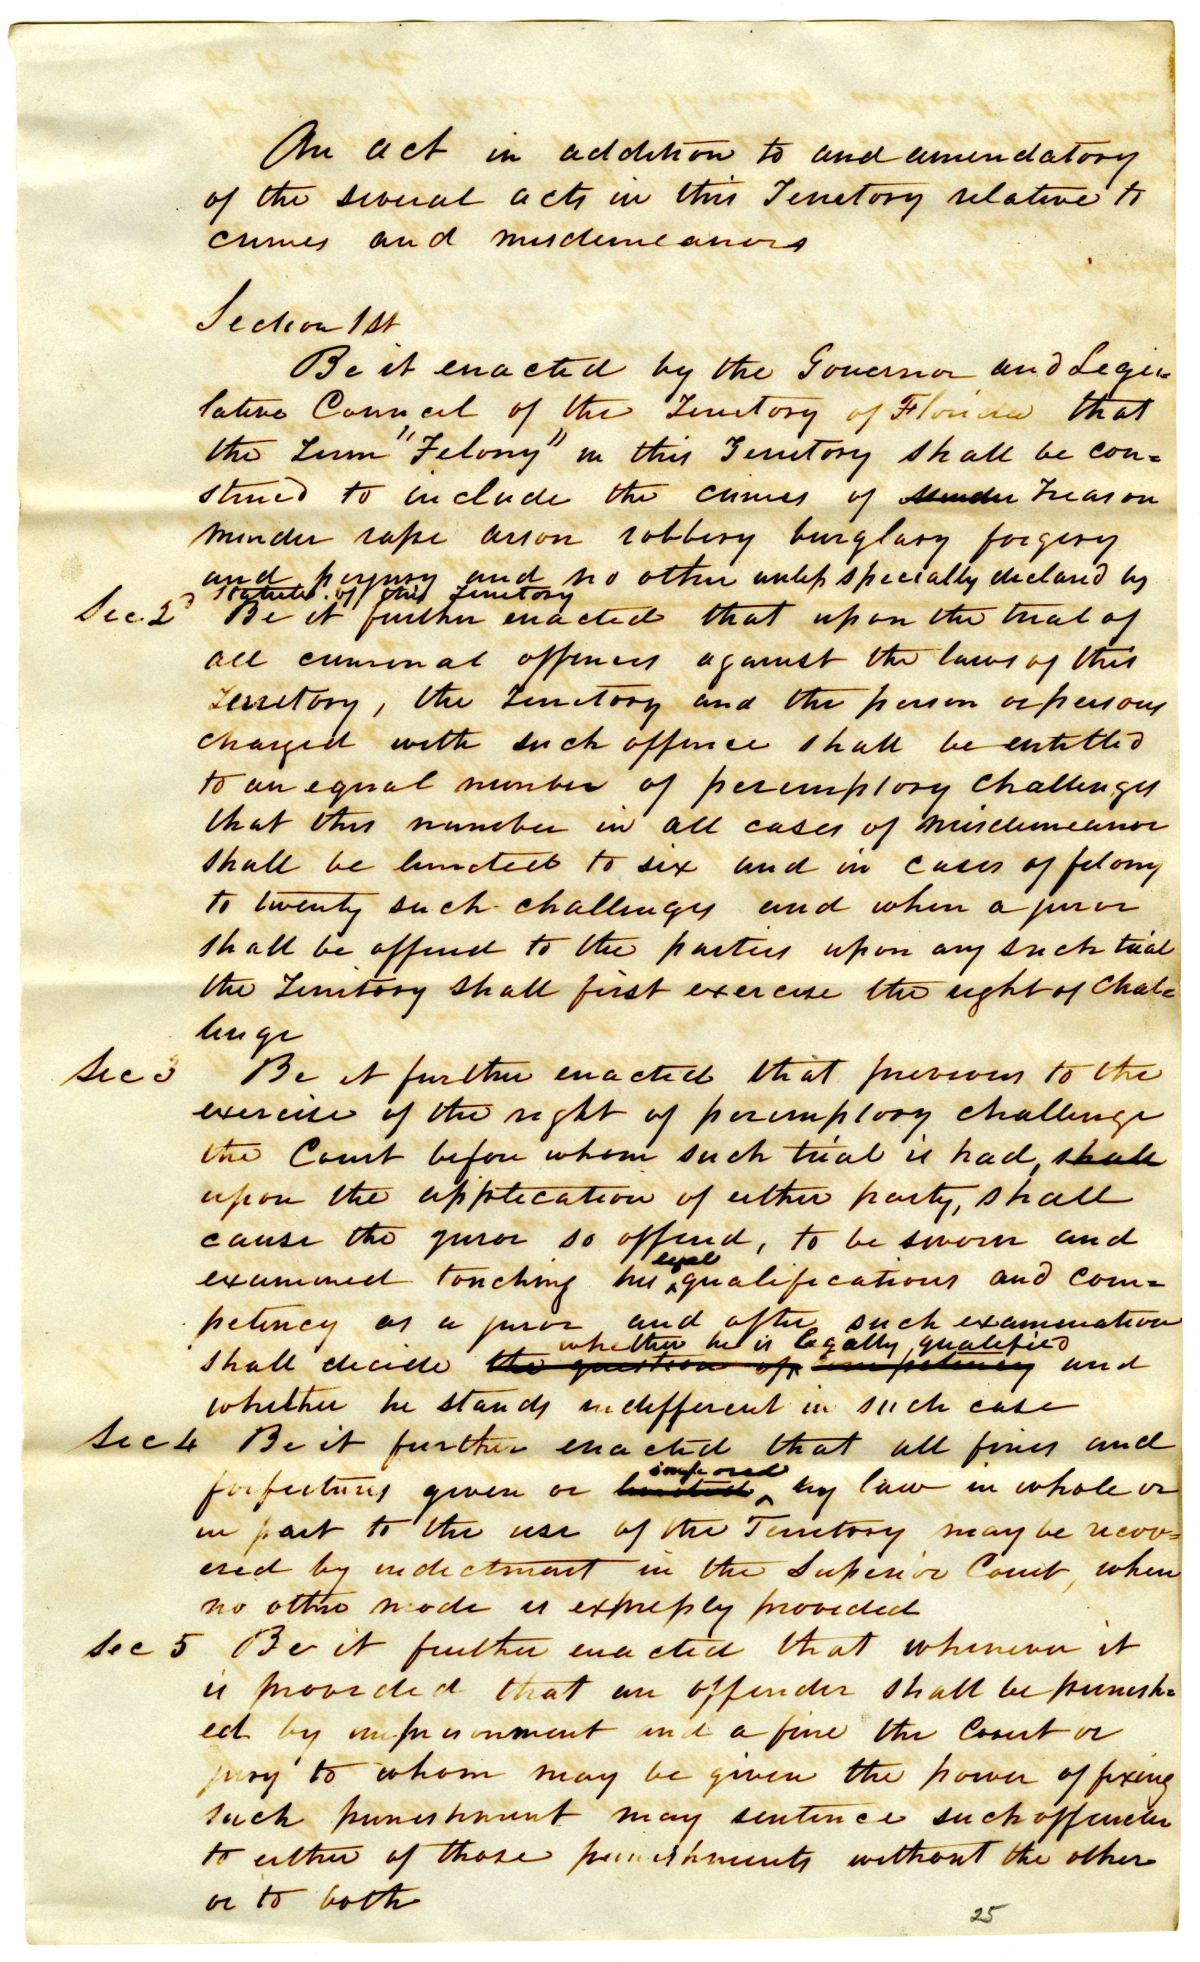 An act in addition to and amendatory
of the several acts in this Territory relative to
crimes and misdemeanors
Section 1st
Be it enacted by the Governor and Legis=
lative Council of the Territory of Florida that
the Term "Felony" in this Territory shall be con=
strued to include the crimes of murder Treason
murder rape arson robbery burglary forgery
and perjury and no other unless specially declared by
statutes of this Territory
Sec. 2d Be it further enacted that upon the trial of
all criminal offences against the laws of this
Territory, the Territory and the person or persons
charged with such offence shall be entitled
to an equal number of peremptory challenges
that this number in all cases of misdemeanor
shall be limited to six and in cases of felony
to twenty such challenges and when a juror
shall be offered to the parties upon any such trial
the Territory shall first exercise the right of chal=
lenge
Sec 3 Be it further enacted that previous to the
exercise of the right of peremptory challenge
the Court before whom such trial is had, shall
upon the application of either party, shall
cause the juror so offered, to be sworn and
legal
examined touching his ^ qualifications and com=
petency as a juror and after such examination
whether he is legally qualified
shall decide the question of ^ competency and
whether he stands indifferent in such case
Sec 4 Be it further enacted that all fines and
imposed
forfeitures given or limited ^ by law in whole or
in part to the use of the Territory may be recov=
ered by indictment in the Superior Court, when
no other mode is expressly provided
Sec 5 Be it further enacted that whenever it
is provided that an offender shall be punish=
ed by imprisonment and a fine the Court or
jury to whom may be given the power of fixing
such punishment may sentence such offender
to either of those punishments without the other
or to both
25